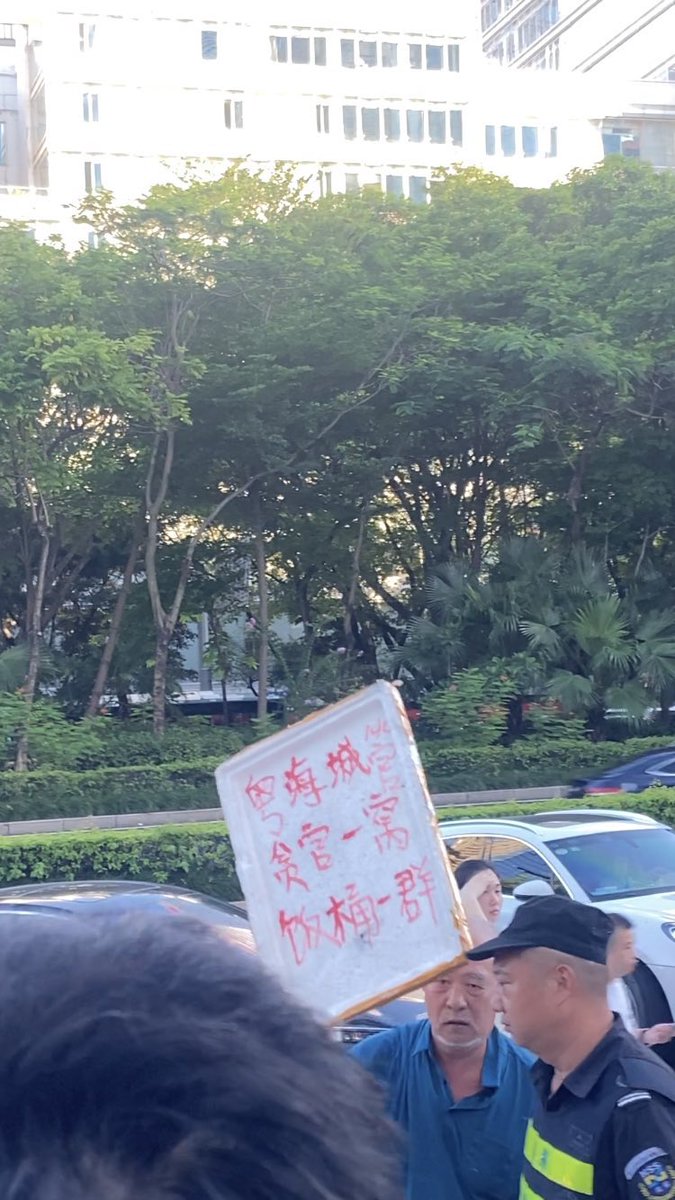 粤海城管
贪官一窝
饭桶一群